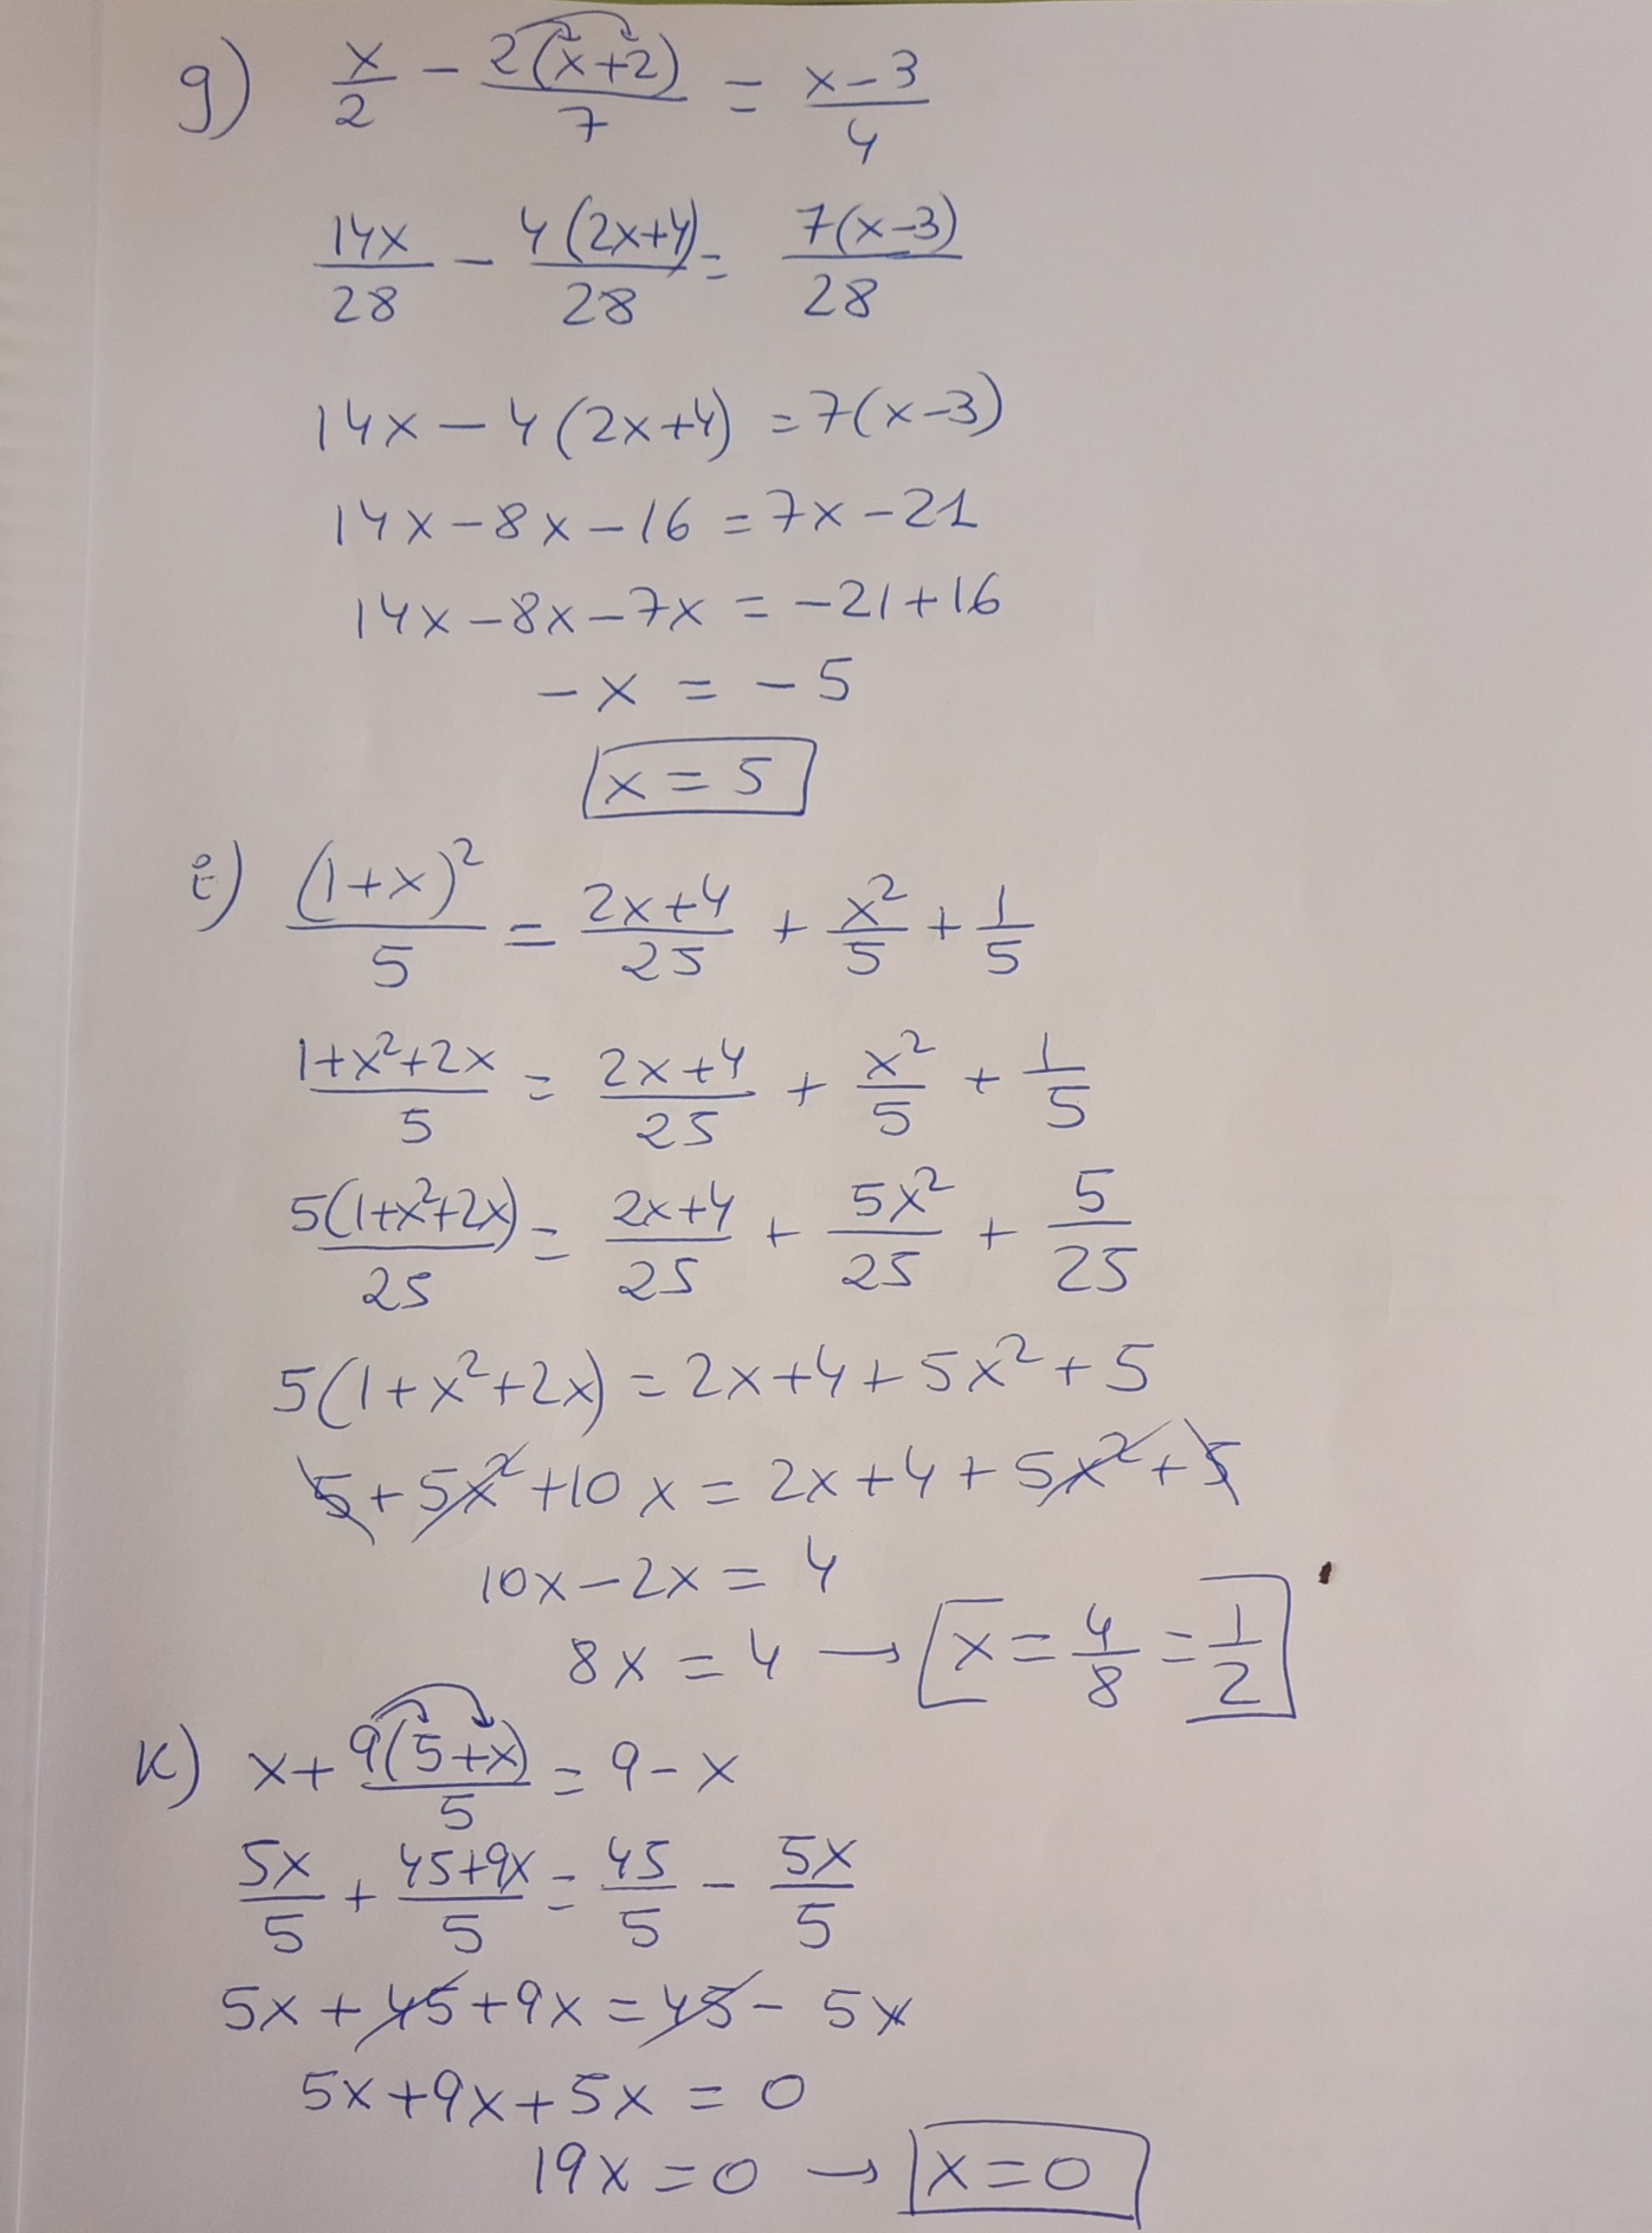 g) x/2 - 2(x+2)/7 = x-3/4
14x/28 - 4(2x+4)/28 = 7(x-3)/28
14x - 4(2x+4) = 7(x-3)
14x - 8x - 16 = 7x - 21
14x - 8x - 7x = -21 + 16
-x = -5
x = 5
i) (1+x)²/5 = 2x+4/25 + x²/5 + 1/5
1+x²+2x/5 = 2x+4/25 + x²/5 + 1/5
5(1+x²+2x)/25 = 2x+4/25 + 5x²/25 + 5/25
5(1+x²+2x) = 2x+4+5x²+5
5+5x²+10x = 2x+4+5x²+5
10x - 2x = 4
8x = 4 → x = 4/8 = 1/2
K) x + 9(5+x)/5 = 9 - x
5x/5 + 45+9x/5 = 45/5 - 5x/5
5x + 45 + 9x = 45 - 5x
5x + 9x + 5x = 0
19x = 0 → x = 0